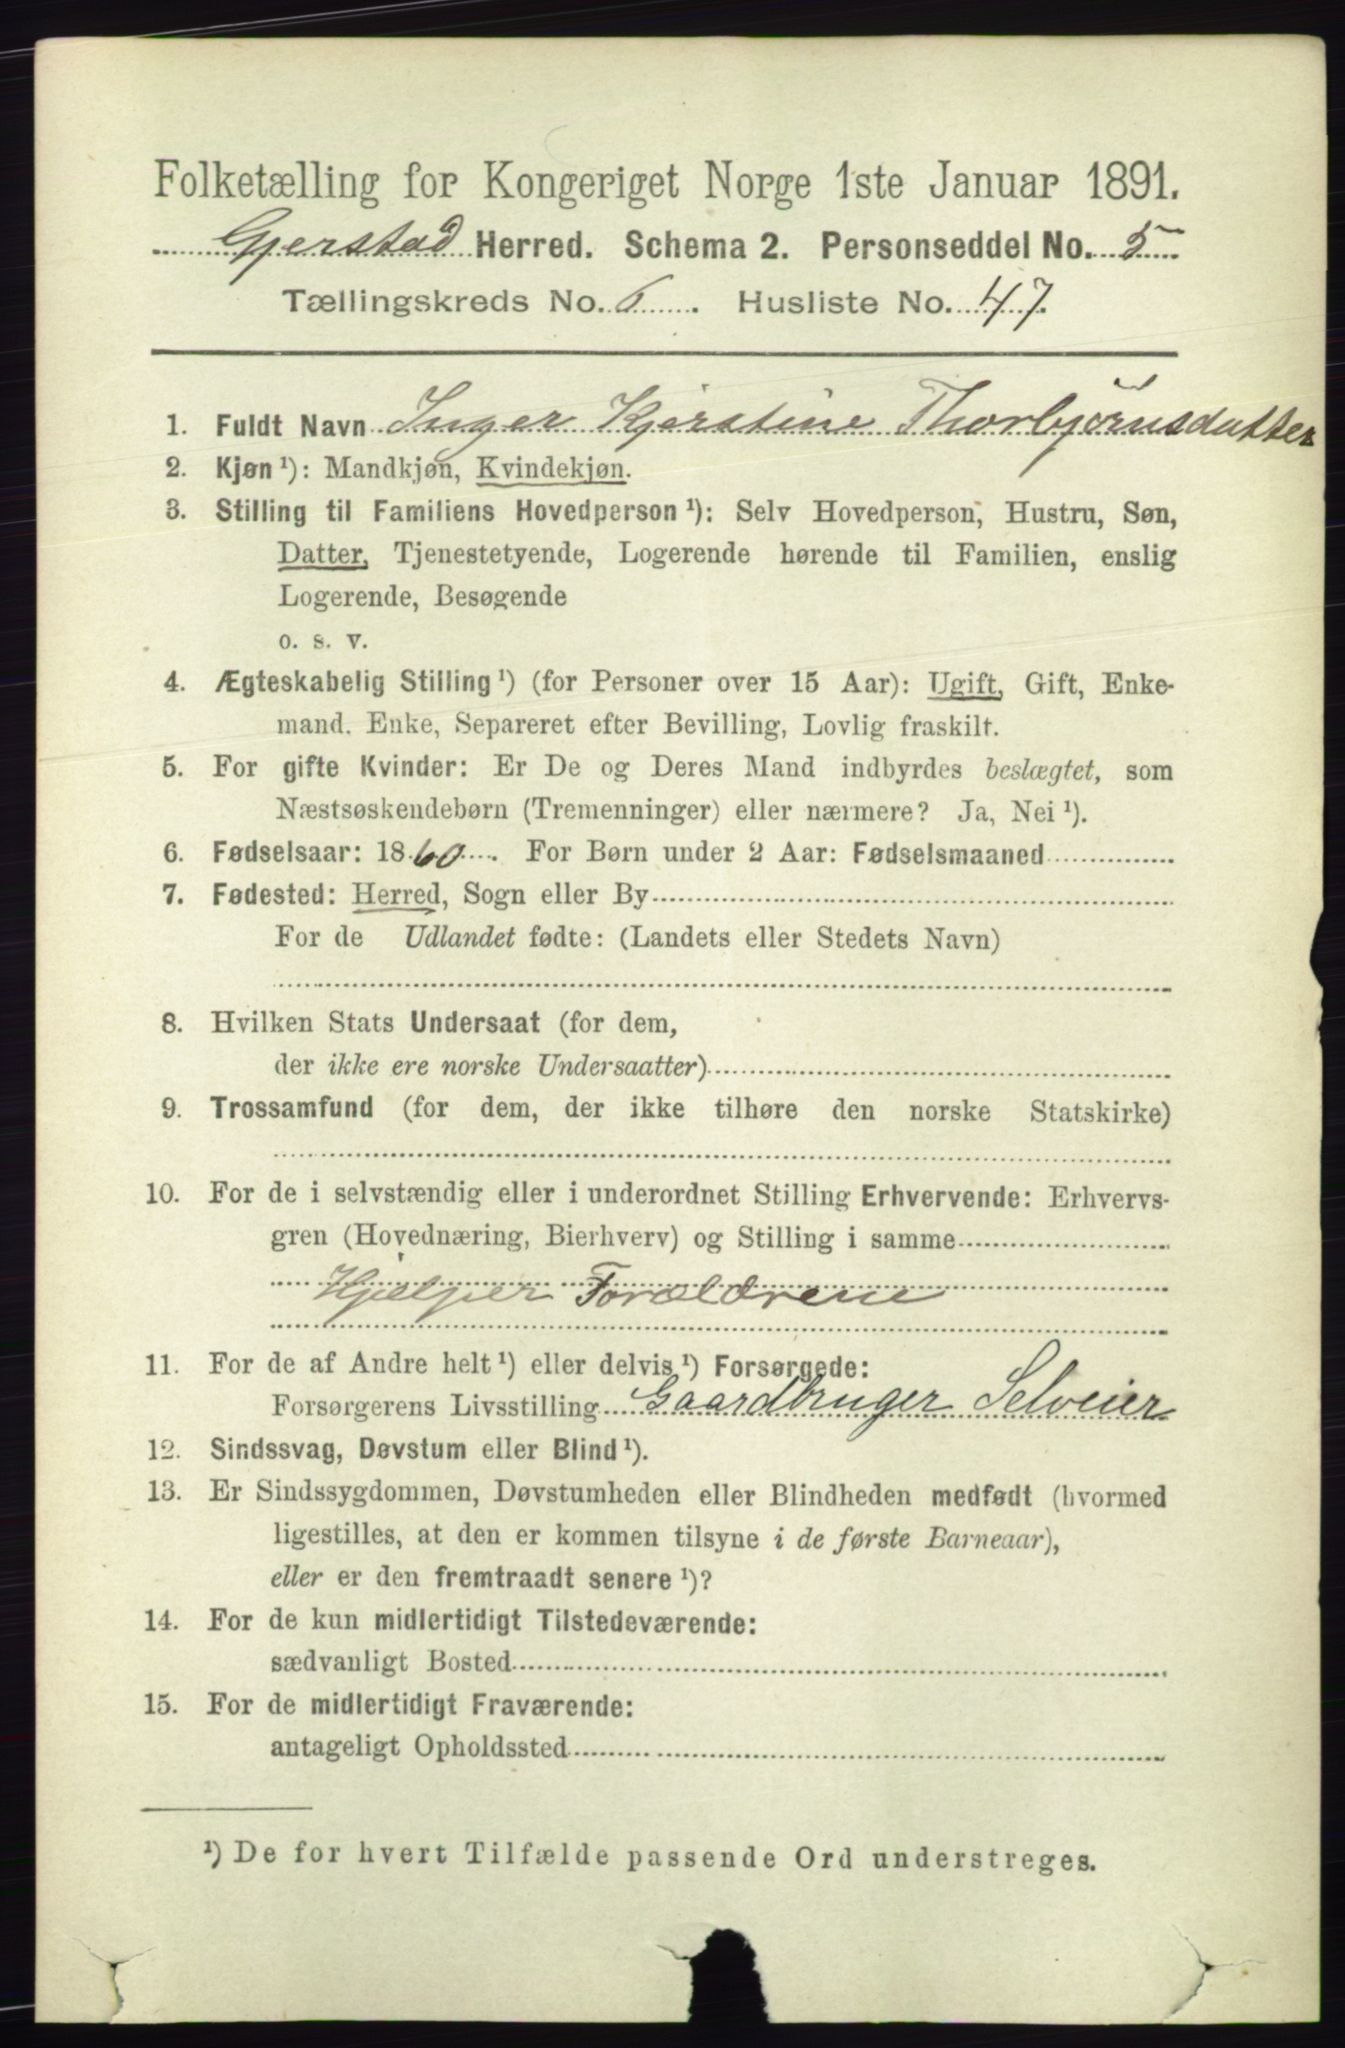 Folketælling for Kongeriget Norge 1ste Januar 1891.
Gjerstad Herred. Schema 2. Personseddel No. 5
Tællingskreds No. 6. Husliste No. 47.
1. Fuldt Navn Inger Kjerstine Thorbjörnsdatter
2. Kjøn ¹): Mandkjøn, Kvindekjøn.
3. Stilling til Familiens Hovedperson ¹): Selv Hovedperson, Hustru, Søn,
Datter, Tjenestetyende, Logerende hørende til Familien, enslig
Logerende, Besøgende
o. s. v.
4. Ægteskabelig Stilling ¹) (for Personer over 15 Aar): Ugift, Gift, Enke-
mand. Enke, Separeret efter Bevilling, Lovlig fraskilt.
5. For gifte Kvinder: Er De og Deres Mand indbyrdes beslægtet, som
Næstsøskendebørn (Tremenninger) eller nærmere? Ja, Nei ¹).
6. Fødselsaar: 1860. For Børn under 2 Aar: Fødselsmaaned
7. Fødested: Herred, Sogn eller By
For de Udlandet fødte: (Landets eller Stedets Navn)
8. Hvilken Stats Undersaat (for dem,
der ikke ere norske Undersaatter)
9. Trossamfund (for dem, der ikke tilhøre den norske Statskirke)
10. For de i selvstændig eller i underordnet Stilling Erhvervende: Erhvervs-
gren (Hovednæring, Bierhverv) og Stilling i samme
Hjelper Forældrene
11. For de af Andre helt ¹) eller delvis ¹) Forsørgede:
Forsørgerens Livsstilling Gaardbruger Selveier
12. Sindssvag, Døvstum eller Blind ¹).
13. Er Sindssygdommen, Døvstumheden eller Blindheden medfødt (hvormed
ligestilles, at den er kommen tilsyne i de første Barneaar),
eller er den fremtraadt senere ¹)?
14. For de kun midlertidigt Tilstedeværende:
sædvanligt Bosted
15. For de midlertidigt Fraværende:
antageligt Opholdssted
¹) De for hvert Tilfælde passende Ord understreges.